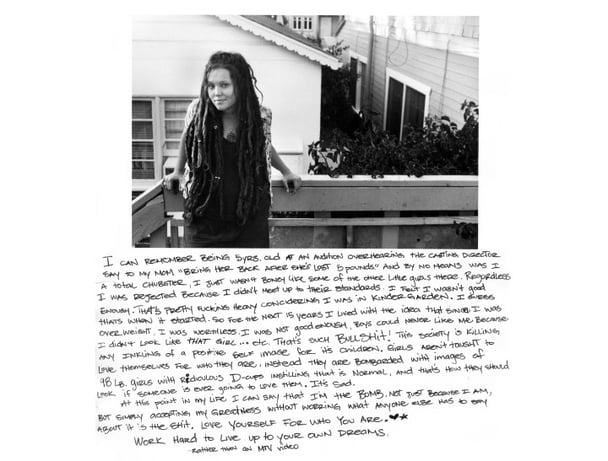 I CAN REMEMBER BEING 5YRS. OLD AT AN AUDITION OVERHEARING THE CASTING DIRECTOR
SAY TO MY MOM "BRING HER BACK AFTER SHE'S LOST 5 POUNDS" AND BY NO MEANS WAS I
A TOTAL CHUBSTER, I JUST WASN'T BONEY LIKE SOME OF THE OTHER LITTLE GIRLS THERE. REGARDLESS
I WAS REJECTED BECAUSE I DIDN'T MEET UP TO THEIR STANDARDS. I FELT I WASN'T GOOD
ENOUGH. THAT'S PRETTY FUCKING HEAVY CONCIDERING I WAS IN KINDERGARDEN. I GUESS
THATS WHEN IT STARTED. SO FOR THE NEXT 15 YEARS I LIVED WITH THE IDEA THAT SINCE I WAS
OVERWEIGHT, I WAS WORTHLESS. I WAS NOT GOOD ENOUGH, BOYS COULD NEVER LIKE ME BECAUSE
I DIDN'T LOOK LIKE THAT GIRL... ETC. THAT'S SUCH BULLSHIT! THIS SOCIETY IS KILLING
ANY INKLING OF A POSITIVE SELF IMAGE FOR ITS CHILDREN. GIRLS AREN'T TAUGHT TO
LOVE THEMSELVES FOR WHO THEY ARE, INSTEAD THEY ARE BOMBARDED WITH IMAGES OF
98 LB. GIRLS WITH RIDICULOUS D-CUPS INSTILLING THAT IS NORMAL, AND THAT'S HOW THEY SHOULD
LOOK IF SOMEONE IS EVER GOING TO LOVE THEM. IT'S SAD.
AT THIS POINT IN MY LIFE I CAN SAY THAT I'M THE BOMB, NOT JUST BECAUSE I AM,
BUT SIMPLY ACCEPTING MY GREATNESS WITHOUT WORRING WHAT ANYONE ELSE HAS TO SAY
ABOUT IT IS THE SHIT. LOVE YOURSELF FOR WHO YOU ARE. ♥★
WORK HARD TO LIVE UP TO YOUR OWN DREAMS.
-RATHER THAN AN MTV VIDEO